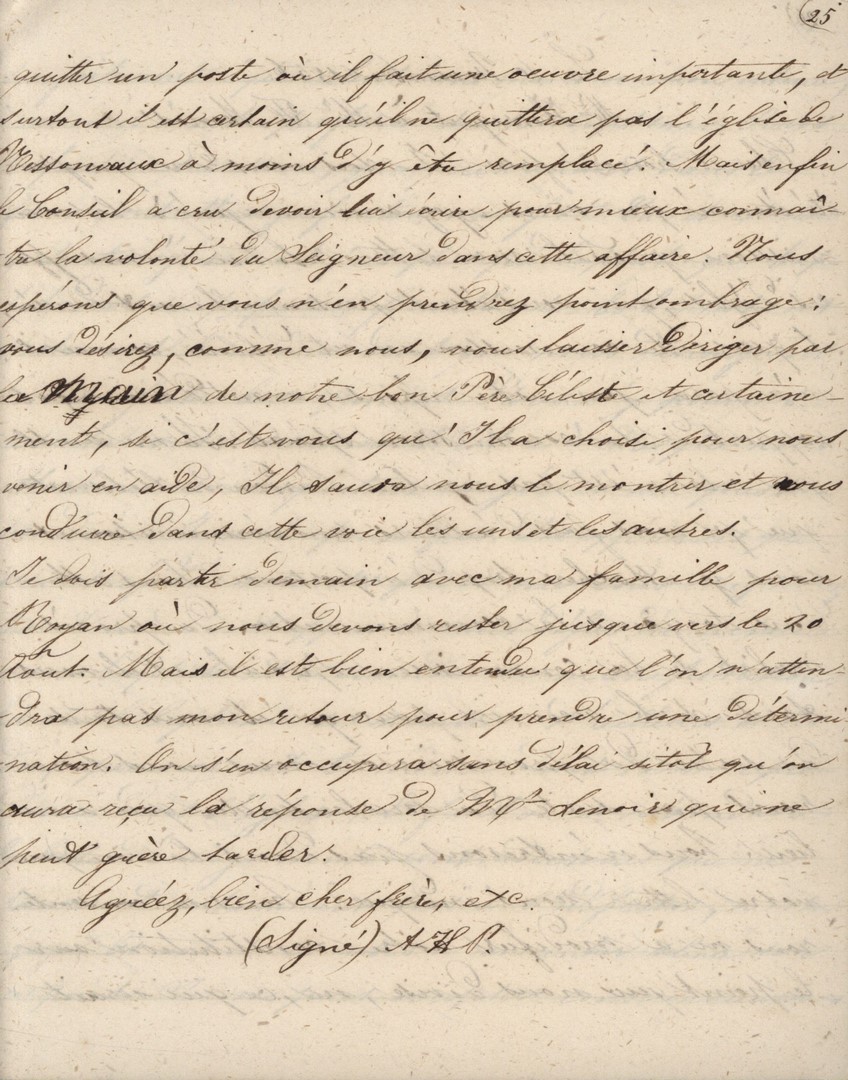 25
quitter un poste où il fait une oeuvre importante, et
surtout il est certain qu'il ne quittera pas l'église de
Nessonvaux à moins d'y être remplacé. Mais enfin
le Conseil a cru devoir lui écrire pour mieux connaî-
tre la volonté du Seigneur dans cette affaire. Nous
espérons que vous n'en prendrez point ombrage:
vous désirez, comme nous, vous laisser diriger par
la main de notre bon Père Céleste et certaine-
ment, si c'est vous qu'Il a choisi pour nous
venir en aide, Il saura nous le montrer et nous
conduire dans cette voie les uns et les autres.
Je dois partir demain avec ma famille pour
Royan où nous devons rester jusque vers le 20
Août. Mais il est bien entendu que l'on n'atten-
dra pas mon retour pour prendre une détermi-
nation. On s'en occupera sans délai sitôt qu'on
aura reçu la réponse de Mr Lenoir qui ne
peut guère tarder.
Agréez, bien cher frère, etc.
(Signé) A H P.